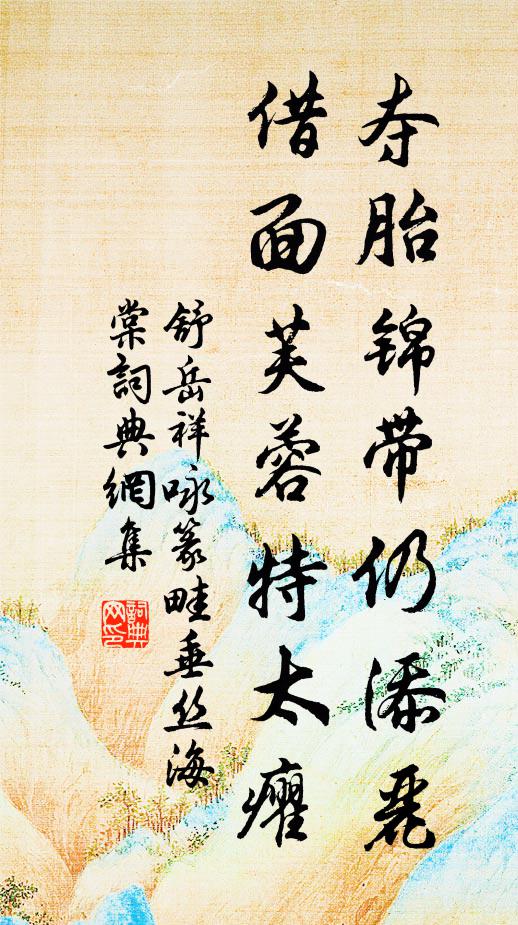 夺胎锦带仍添丽
借面芙蓉特太癯
舒岳祥咏篆畦垂丝海
棠詞典網集
詞典網印